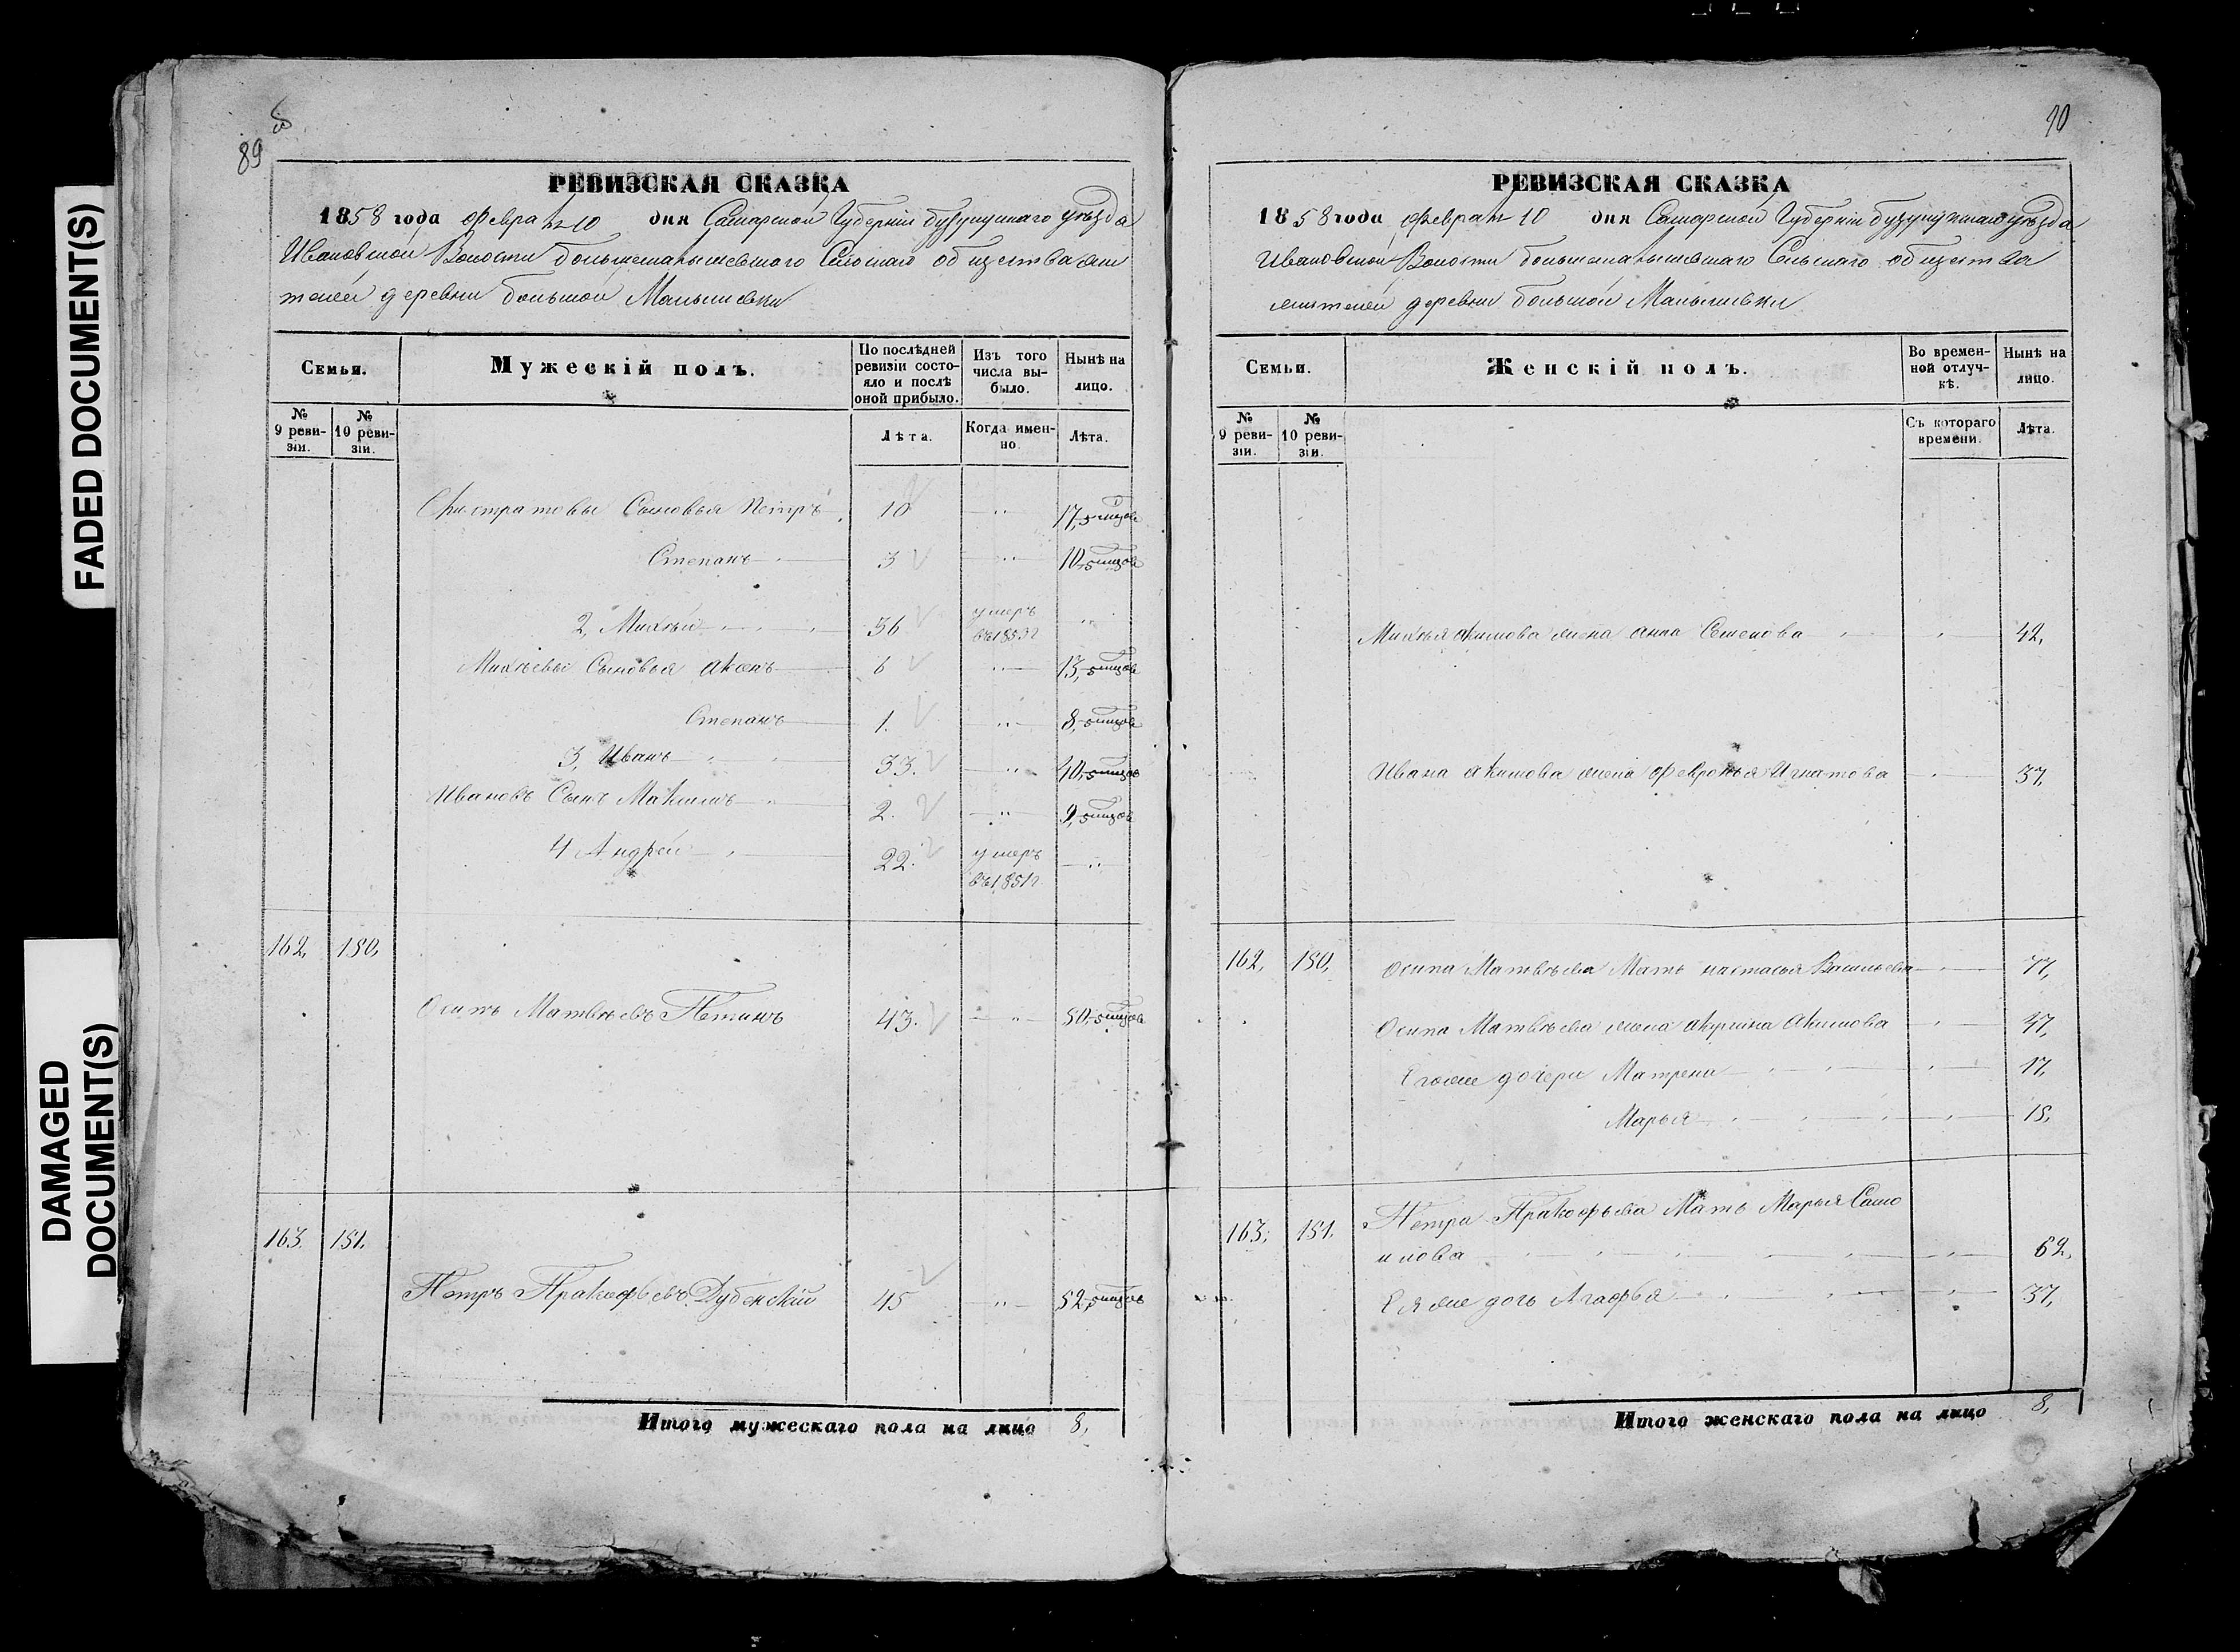 FADED DOCUMENT(S)
DAMAGED
DOCUMENT(S)
89
РЕВИЗСКАЯ СКАЗКА
1858 года Февраля 10 дня Самарской Губерніи Бузулукскаго уѣзда
Ивановской Волости Большемалышевскаго Сельскаго общества жи
телей деревни Большой Малышевки
Семьи.
Мужескій полъ.
По послѣдней ревизіи состояло и послѣ оной прибыло.
Изъ того числа выбыло.
Нынѣ на лицо.
№ 9 ревизіи.
№ 10 ревизіи.
Лѣта.
Когда именно.
Лѣта.
сыновья Петръ 10 17,
Степанъ 3 10,
2, Михѣй 36 умеръ въ 185
Михѣевы Сыновья 6 13,
Степанъ 1. 8,
3, Иванъ 33. 40,
Ивановъ Сынъ Максимъ 2. 9,
4 Андрей 22. умеръ въ 1851г.
162, 150,
Осипъ Матвѣевъ 43. 50,
163. 151.
Петръ Пракофьевъ Дубенскій 45 52,
Итого мужескаго пола на лицо 8,
90
РЕВИЗСКАЯ СКАЗКА
1858 года Февраля 10 дня Самарской Губерніи Бузулукскаго уѣзда
Ивановской Волости Большемалышевскаго Сельскаго общества
жителей деревни Большой Малышевки
Семьи.
Женскій полъ.
Во временной отлучкѣ.
Нынѣ на лицо.
№ 9 ревизіи.
№ 10 ревизіи.
Съ котораго времени.
Лѣта.
Михѣя Акимова жена Анна Семенова 42,
Ивана Акимова жена Февронья Игнатова 37,
162, 150, Осипа Матвѣева Мать Настасья Васильева 77,
Осипа Матвѣева жена Акулина Акимова 47,
Егоже дочери Матрена 17,
Марья 15,
163, 151. Петра Пракофьева Мать Марья Само
илова 62,
Ея же дочь Агафья 37,
Итого женскаго пола на лицо 8,